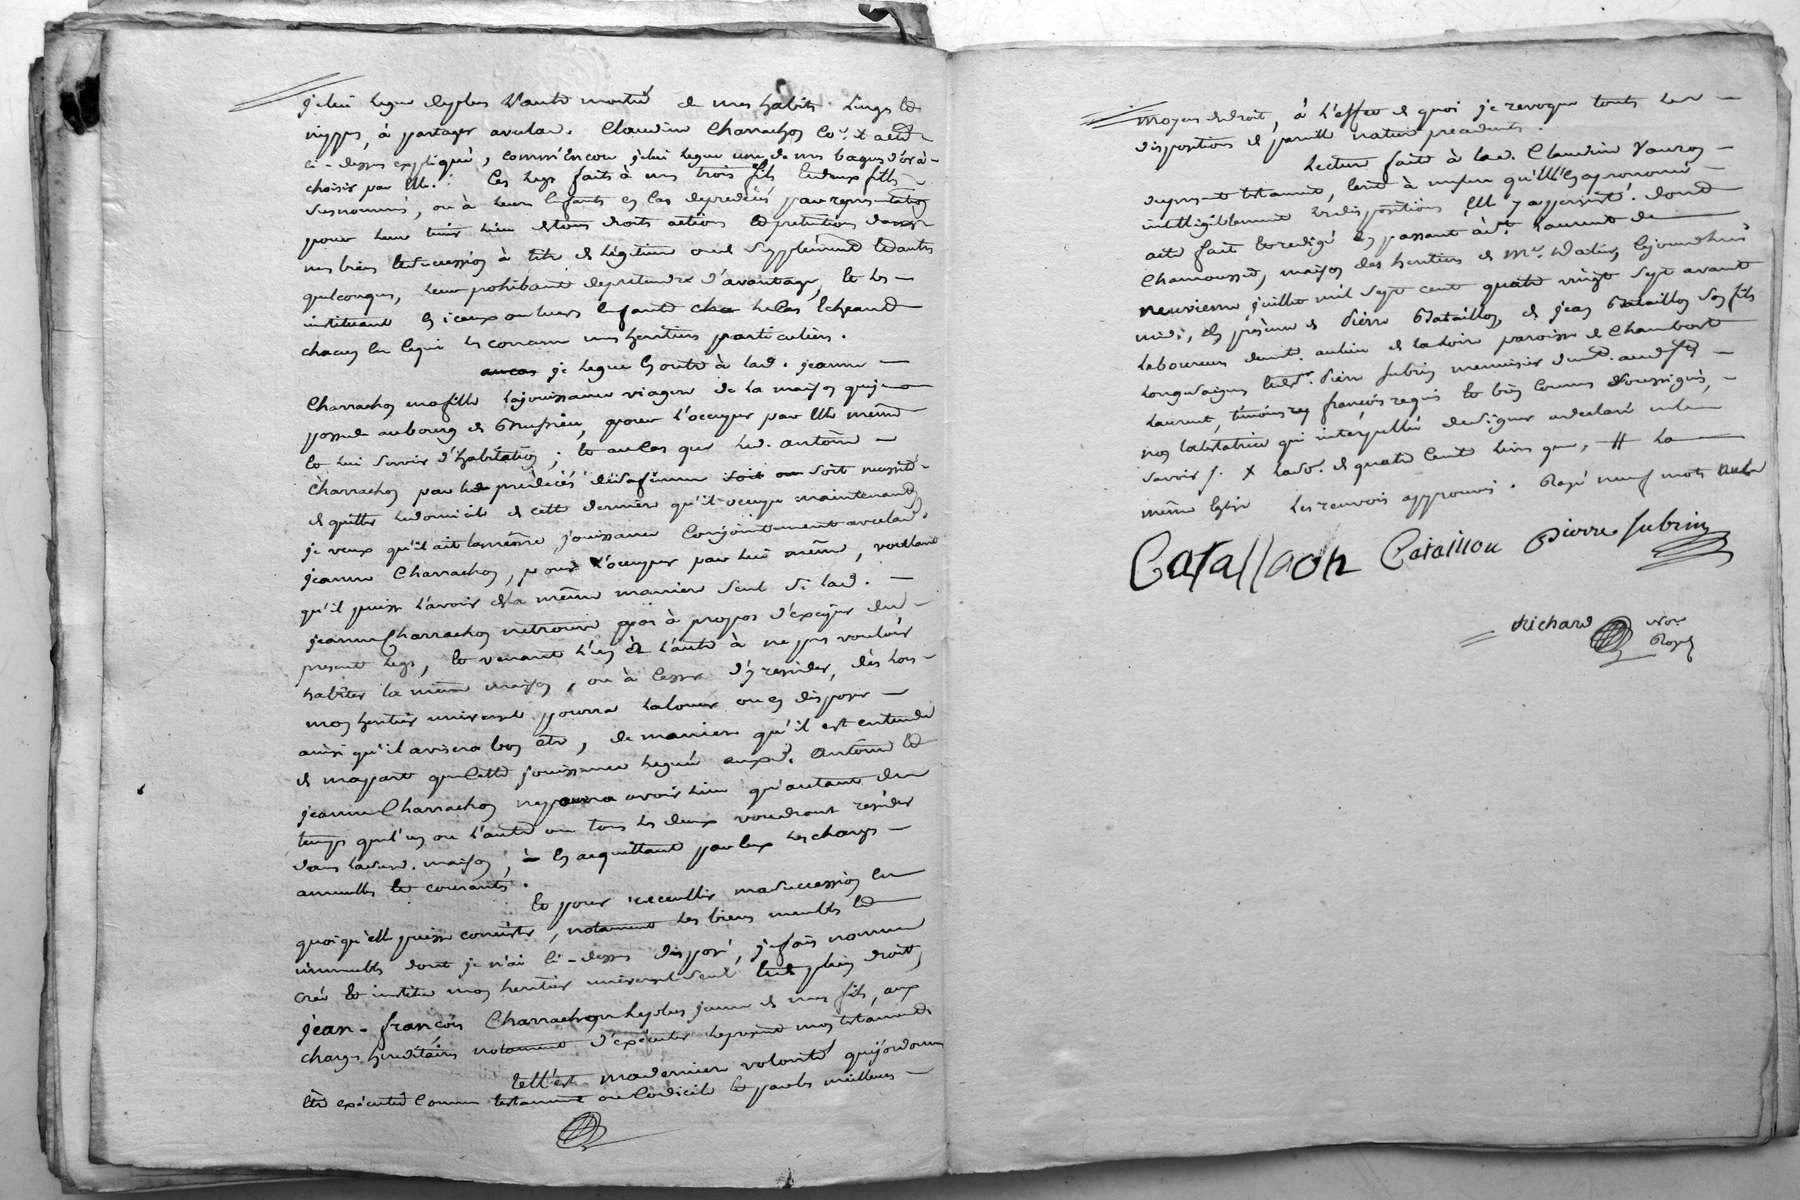 je lui legue de plus l'autre moitié de mes habits linges et
nippes, à partager avec lad. Claudine Charrachon
ci-dessus expliqué, comm'encore je lui legue une de mes bagues d'or à
choisir par elle. Ces legs faits à mes trois fils et deux filles
susnommés, ou à leurs enfants en cas de predecés pour representation
pour leur tenir lieu de tous droits actions et pretentions dans
mes biens et succession à titre de légitime ou de supplément et autres
quelconques, leur prohibant de pretendre d'avantage, et les
instituant en iceux ou leurs enfants le cas échéant
chacun en ce qui les concerne mes heritiers particuliers.
je legue en outre à lad. jeanne
Charrachon ma fille la jouissance viagere de la maison que je
possede au bourg de Brussieu, pour l'occuper par elle même
et lui servir d'habitation; et au cas que led. antoine
Charrachon par le prédécés de sa femme soit ou soit necessité
de quitter le domicile de cette derniere qu'il occupe maintenant,
je veux qu'il ait la même jouissance conjointement avec lad.
jeanne Charrachon, pour l'occuper par lui même, voulant
qu'il puisse l'avoir de la même maniere seul si lad.
jeanne Charrachon ne trouve pas à propos d'exiger du
present legs, et venant l'un et l'autre à ne pas vouloir
habiter la même maison, ou à cesser d'y resider, dès lors
mon heritier universel pourra la louer ou en disposer
ainsi qu'il avisera bon etre, de maniere qu'il est entendu
de ma part que cette jouissance leguée auxd. antoine et
jeanne Charrachon ne pourra avoir lieu qu'autant de
temps que l'un ou l'autre ou tous les deux voudront resider
dans lad. maison, en acquittant par eux les charges
annuelles et courantes.
et pour recueillir ma succession en
quoi qu'elle puisse consister, notamment les biens meubles et
immeubles dont je n'ai ci-dessus disposé, je fais nomme
crée et institue mon heritier universel seul et de plein droit,
jean-françois Charrachon le plus jeune de mes fils, aux
charges hereditaires notamment d'exécuter le present mon testament
tell'est ma derniere volonté que j'ordonne
etre exécutée comme testament ou codicile et par les meilleurs
moyens de droit, à l'effet de quoi je revoque toutes les
dispositions de pareille nature precedentes.
Lecture faite à lad. Claudine Vauron
du present testament, lent à mesure qu'elle en a prononcé
intelligiblement les dispositions elle y a persisté. dont
acte fait et redigé en passant à St. laurent de
Chamousset, maison des heritiers de Mr. cejourd'hui
neuvieme juillet mil sept cent quatre vingt sept avant
midi, en présence de Pierre Bataillon, de jean Bataillon son fils
laboureurs demt. au lieu de la Loire paroisse de Chambost
Longessaigne et de Sr. Pierre Subrin menuisier demt. aud. St.
laurent, témoins requis et bien connus soussignés,
non la testatrice qui interpellée de signer a declaré ne le
savoir /. X lad. de quatre cents livres que, # la
même église les renvois approuvés. Rayé neuf mots nuls
Batallaon Bataillon Pierre Subrin
Richard Nore
Royal